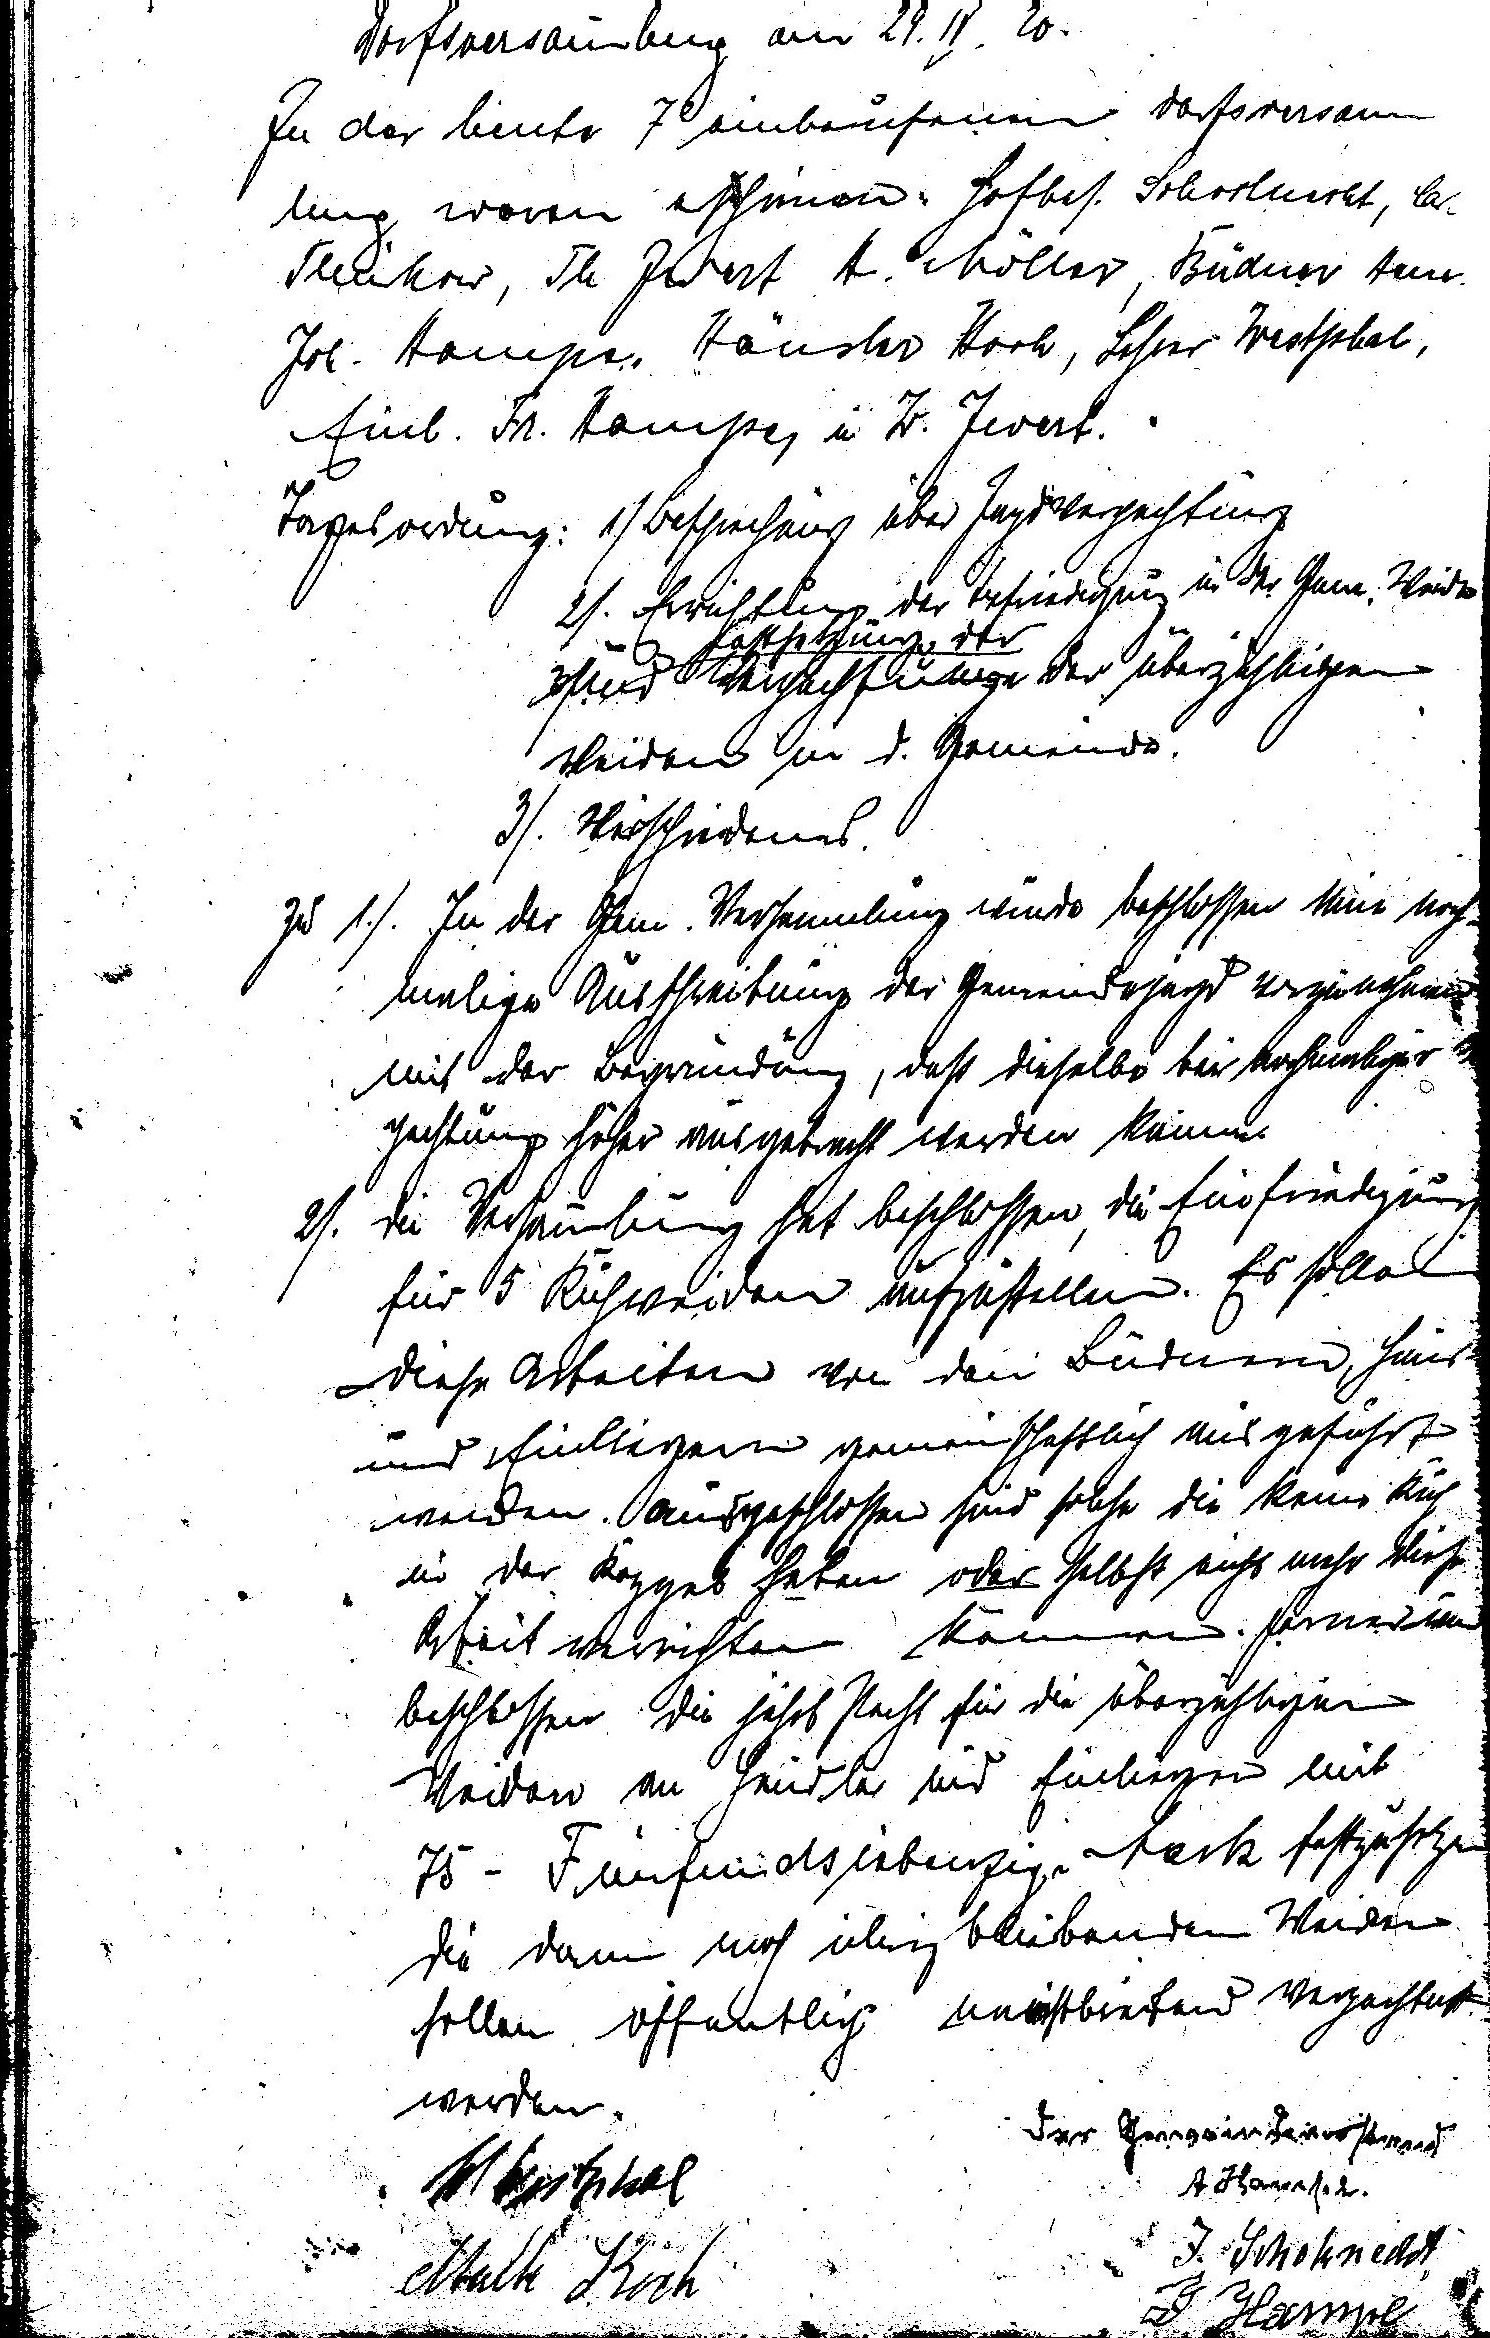 Dorfsversamlung am 29. IV. 20.
In der heute 7 einberufenen Dorfsversamm
lung waren erschienen. Hofbes. Schoknecht,
Th. Jwert A. Möller, Büdner
Joh. Hampe, Häusler Koch, Lehrer Westphal,
Einl. Fr. Hampe, u W. Jwert.
Tagesordnung: 1) Besprechung über Jagdverpachtung
2). Errichtung der Befriedigung in der Gem. Weide
Festsetzung der
und Verpachtunge der überzähligen
Weiden in d. Gemeinde.
3). Verschiedenes.
Zu 1.). In der Gem. Versammlung wurde beschlossen eine noch-
malige Ausschreibung der Gemeindejagd vorzunehmen
mit der Begründung, daß dieselbe bei nochmaliger
pachtung höher ausgebracht werden könne
2). die Versamlung hat beschlossen, die Einfriedigung
für 5 Kuhweiden aufzustellen. Es sollen
diese Arbeiten von den Büdnern, Häus-
und Einliegern gemeinschaftlich ausgeführt
werden. Ausgeschlossen sind solche die keine Kuh
in der Koppel haben oder selbst nicht mehr diese
Arbeit verrichten können. Ferner
beschlossen die jährl Pacht für die überzähligen
Weiden an Häusler und Einlieger mit
75 - Fünfundsiebenzig Mark festzusetzen
die dann noch übrig bleibenden Weiden
sollen öffentlich meistbietend verpachtet
werden.
Der Gemeindevorstand
Westphal
J. Schoknecht
Koch
J Hampe